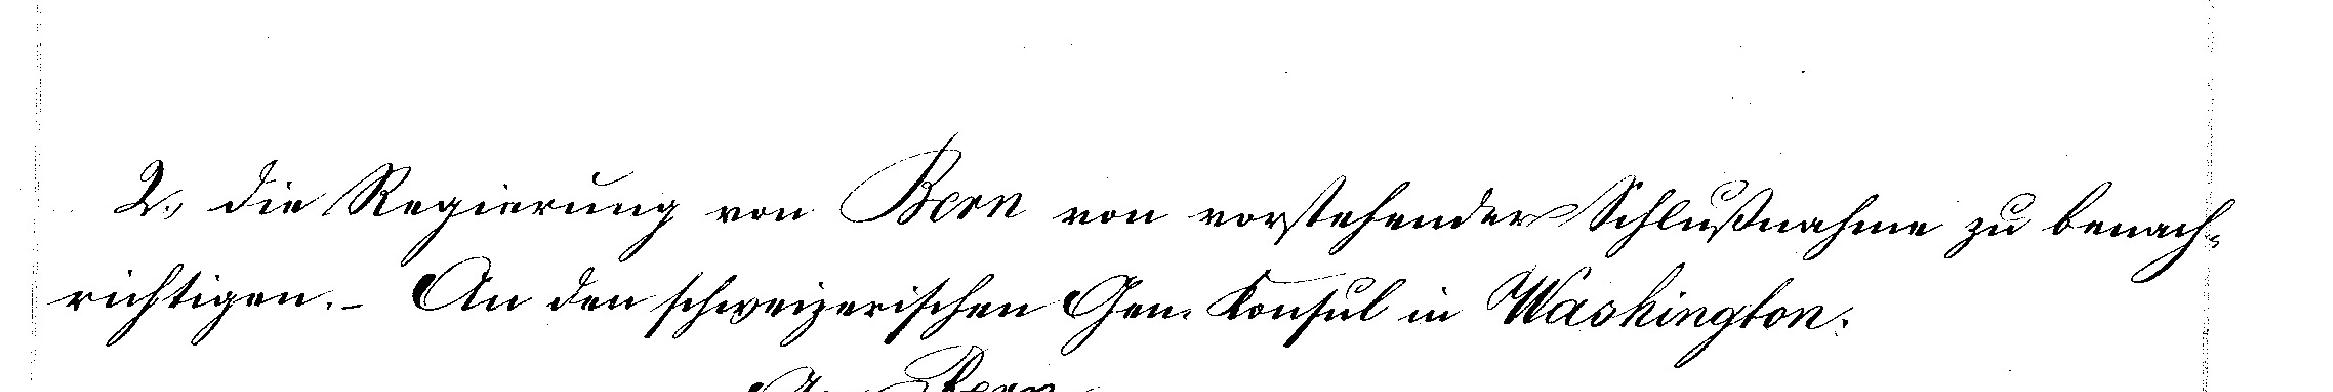 2., die Regierung von Bern von vorstehender Schlußnahme zu benach-
richtigen. - An den schweizerischen Gen. Konsul in Washington.